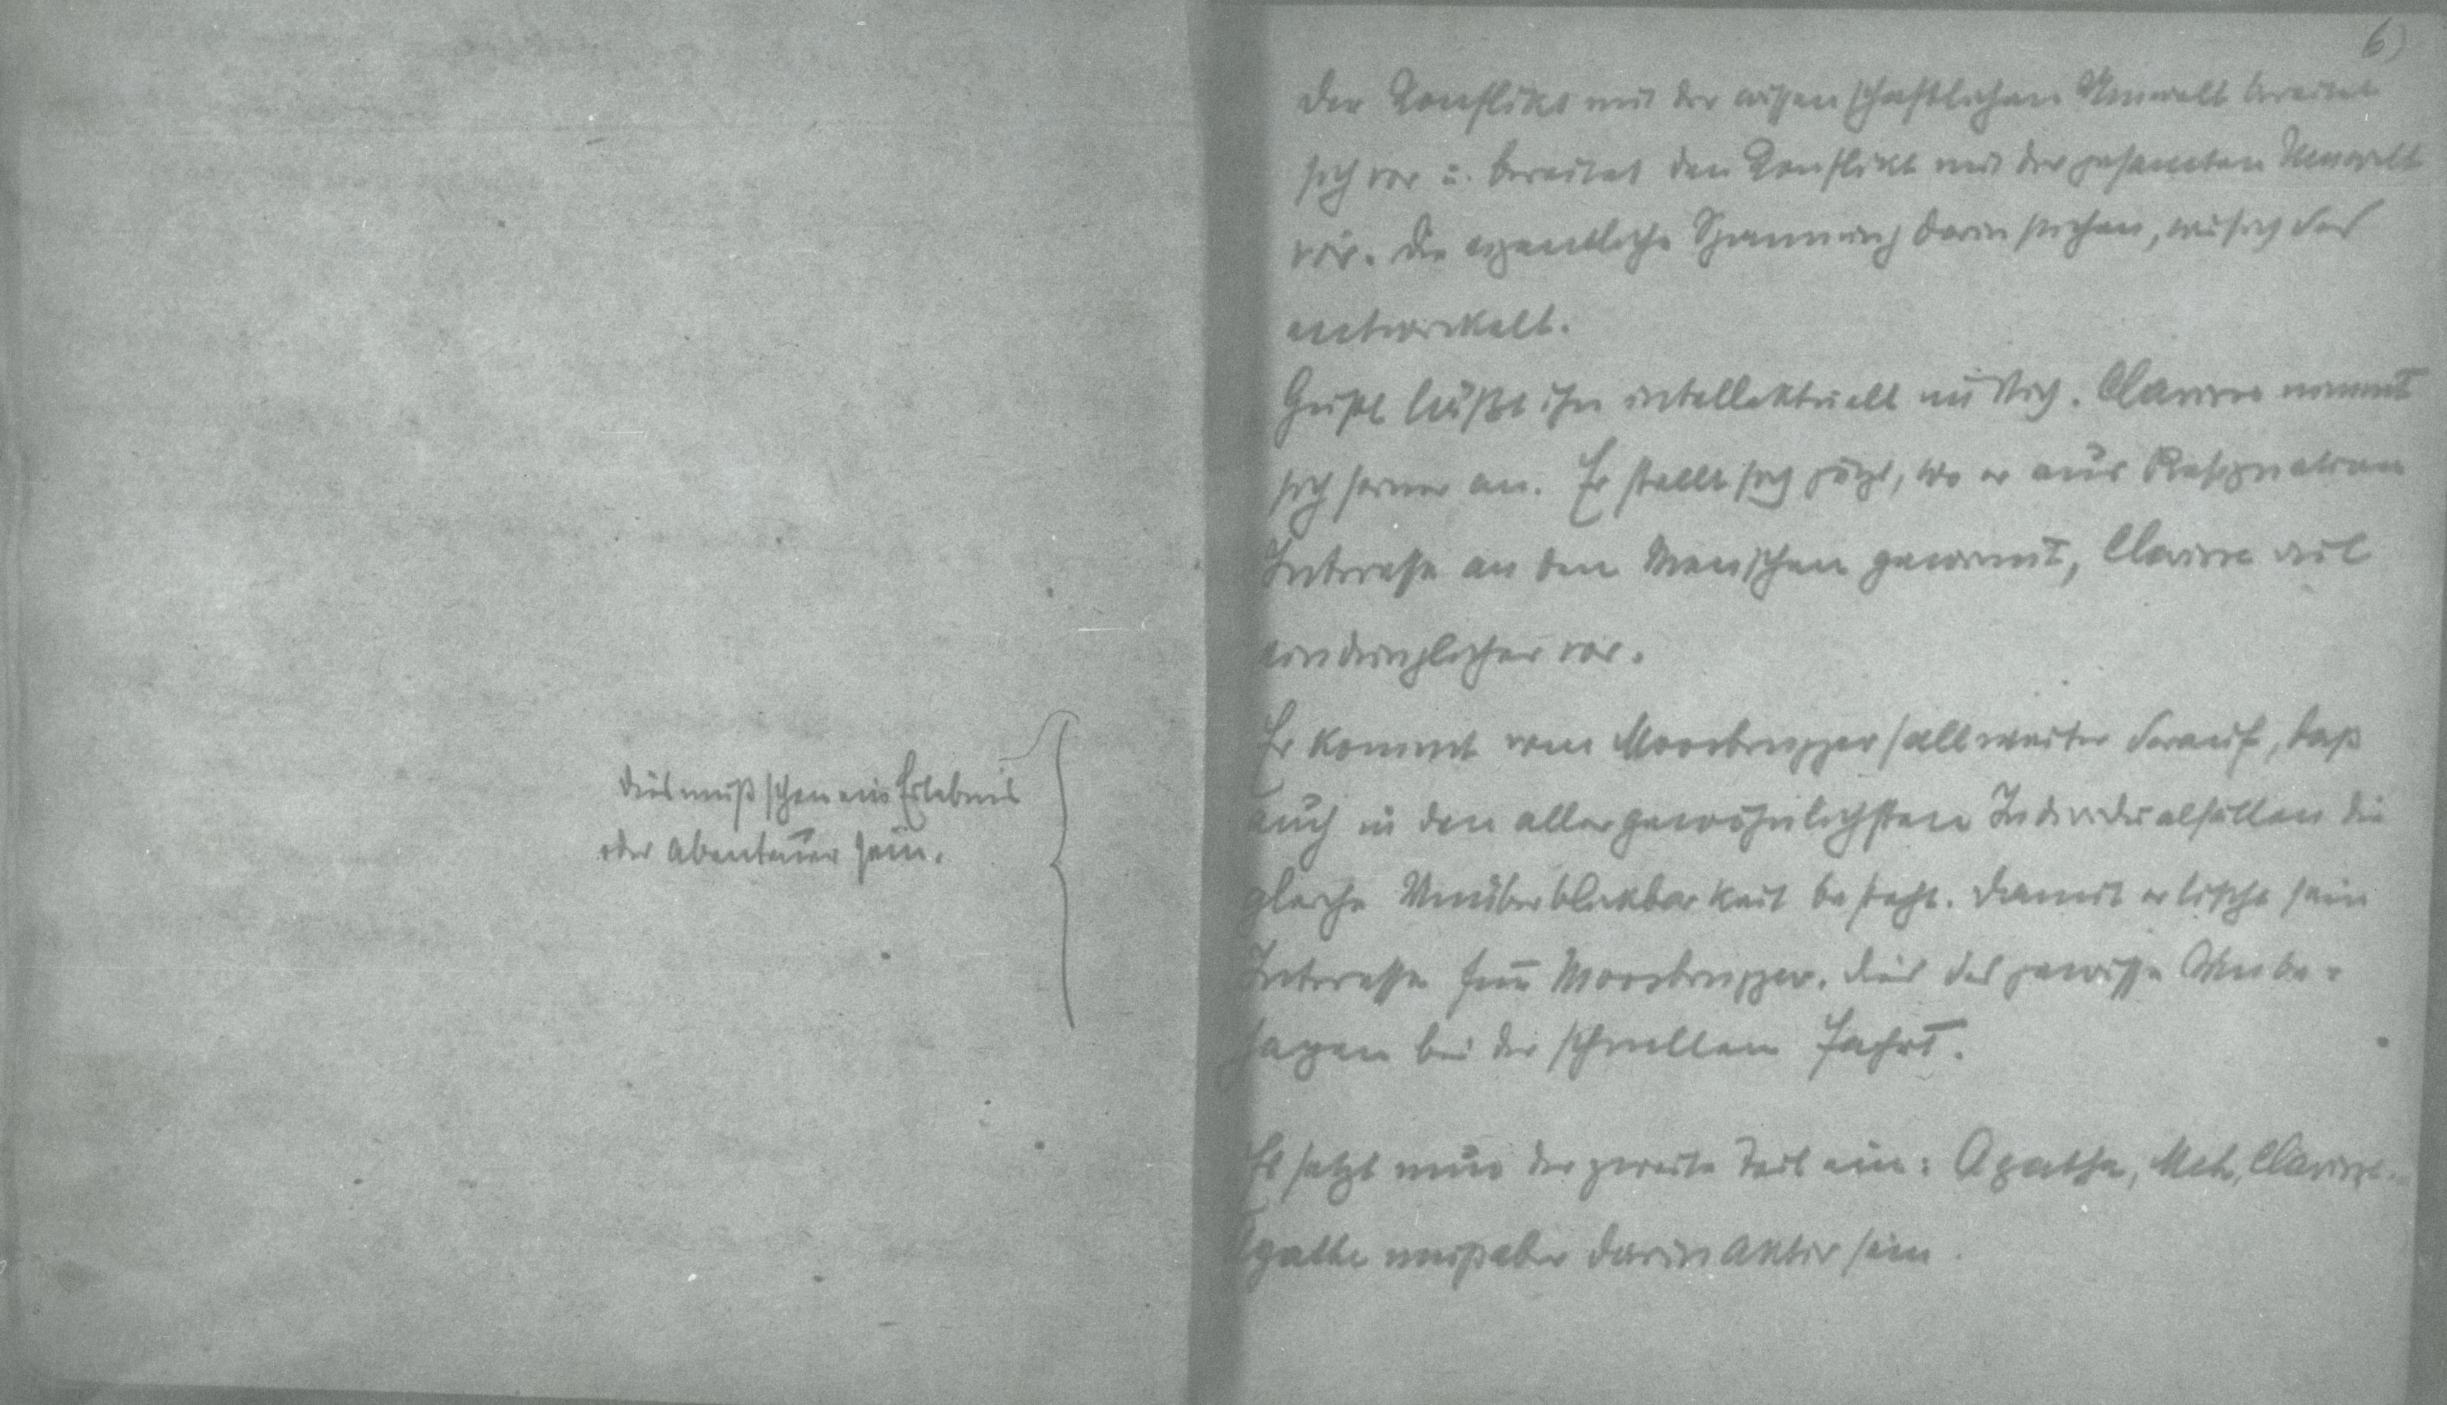 dies muß schon ein Erlebnis
oder Abenteuer sein.
6)
Der Konflikt mit der wissenschaftlichen Umwelt bereitet
sich vor u. bereitet den Konflikt mit der gesamten Umwelt
vor. Die eigentliche Spannung darin suchen, wie sich das
entwickelt.
Gustl läßt ihn intellektuell im Stich. Clarisse nimmt
sich seiner an. Er stellt sich jetzt, wo er aus Resignation
Interesse an den Menschen gewinnt, Clarisse viel
eindringlicher vor.
Er kommt vom Moosbruggerfall weiter darauf, daß
auch in den allergewöhnlichsten Individualfällen die
gleiche Unüberblickbarkeit besteht. Damit erlischt sein
Interesse für Moosbrugger. Dies das gewisse Unbe-
hagen bei der schnellen Fahrt.
Es setzt nun der zweite Teil ein: Agathe, Meh, Clarisse..
Agathe muß aber darin aktiv sein.